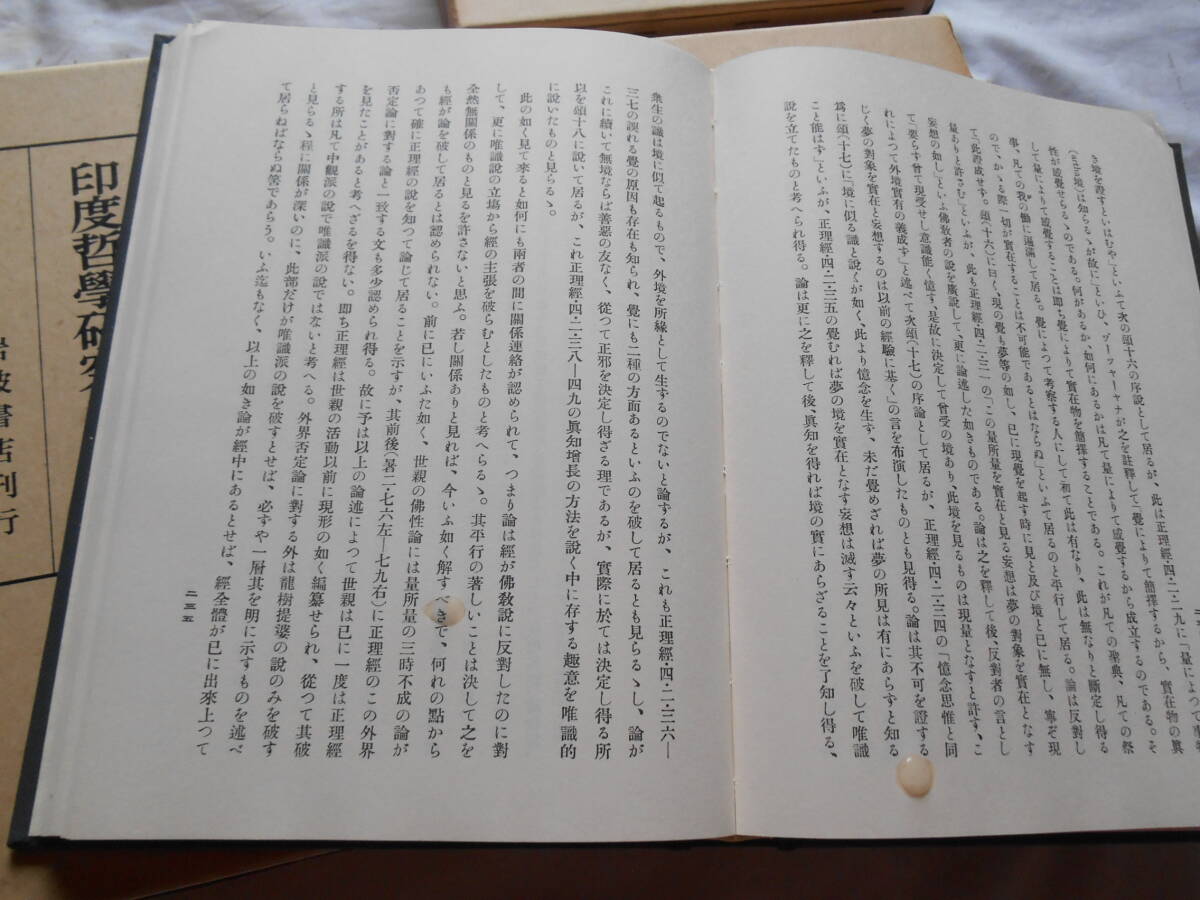 き境を證すといはむや」といふて次の頌十六の序說として居るが、此は正理經・四・二・二九に「量によつて事
(artha境)は知らるゝが故に」といひ、ヷーツヤーヤナが之を註釋して「覺によりて簡擇するから、實在物の眞
性が感覺せらるゝのである。何があるか、如何にあるかは凡て量によりて感覺するから成立するのである。そ
して量によりて感覺することは即ち覺によりて實在物を簡擇することである。これが凡ての聖典、凡ての祭
事、凡ての我の働に遍滿して居る。覺によつて考察する人にして初て此は有なり、此は無なりと斷定し得る
ので、かゝる際一切が實在することは不可能であるとはならぬ」といふて居るのと平行して居る。論は反對し
て「此證成せず。頌(十六)に曰く、現の覺も夢等の如し、已に現覺を起す時に見と及び境と已に無し、寧ぞ現
量ありと許さむ」といふが、此も正理經・四・二・三一の「この量所量を實在と見る妄想は夢の對象を實在となす
妄想の如し」といふ佛敎者の說を廣說して、更に論述した如きものである。論は之を釋して後、反對者の言とし
て「要らず曾て現受せし意識能く憶す是故に決定して曾受の境あり、此境を見るものは現量となすと許す、こ
れによつて外境實有の義成す」と述べて次頌(十七)の序論として居るが、正理經・四・二・三四の「憶念思惟と同
じく夢の對象を實在と妄想するのは以前の經驗に基く」の言を布演したものとも見得る。論は其不可を證する
爲に頌(十七)に「境に似る識と說くが如く、此より憶念を生す、未だ覺めざれば夢の所見は有にあらすと知る
こと能はす」といふが、正理經・四・二・三五の覺むれば夢の境を實在となす妄想は滅す云々といふを破して唯識
說を立てたものと考へられ得る。論は更に之を釋して後、眞知を得れば境の實にあらざることを了知し得る、
衆生の識は境に似て起るもので、外境を所緣として生するのでないと論するが、これも正理經・四・二・三六—
三七の誤れる覺の原因も存在も知られ、覺にも二種の方面あるといふのを破して居るとも見らるゝし、論が
これに續いて無境ならば善惡の友なく、從つて正邪を決定し得ざる理であるが、實際に於ては決定し得る所
以を頌十八に說いて居るが、これ正理經・四・二・三八—四九の眞知增長の方法を說く中に存する趣意を唯識的
に說いたものと見らるゝ。
此の如く見て來ると如何にも兩者の間に關係連絡が認められて、つまり論は經が佛敎說に反對したのに對
して、更に唯識說の立塲から經の主張を破らむとしたものと考へらるゝ。其平行の著しいことは決して之を
全然無關係のものと見るを許さないと思ふ。若し關係ありと見れば、今いふ如く解すべきで、何れの點から
も經が論を破して居るとは認められない。前に已にいふた如く、世親の佛性論には量所量の三時不成の論が
あつて確に正理經の說を知つて論じて居ることを示すが、其前後(暑二・七六左—七九右)に正理經のこの外界
否定論に對する論と一致する文も多少認められ得る。故に予は以上の論述によつて世親は已に一度は正理經
を見たことがあると考へざるを得ない。即ち正理經は世親の活動以前に現形の如く編纂せられ、從つて其破
する所は凡て中觀派の說で唯識派の說ではないと考へる。外界否定論に對する外は龍樹提婆の說のみを破す
と見らるゝ程に關係が深いのに、此部だけが唯識派の說を破すとせば、必ずや一層其を明に示すものを述べ
て居らねばならぬ筈であらう。いふ迄もなく、以上の如き論が經中にあるとせば、經全體が已に出來上つて
二三五
印度哲學研究
岩波書店刊行